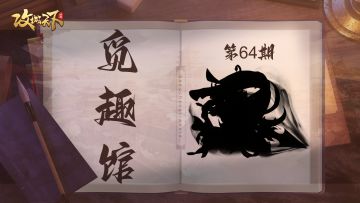 攻城天下
觅
趣
馆
第64期